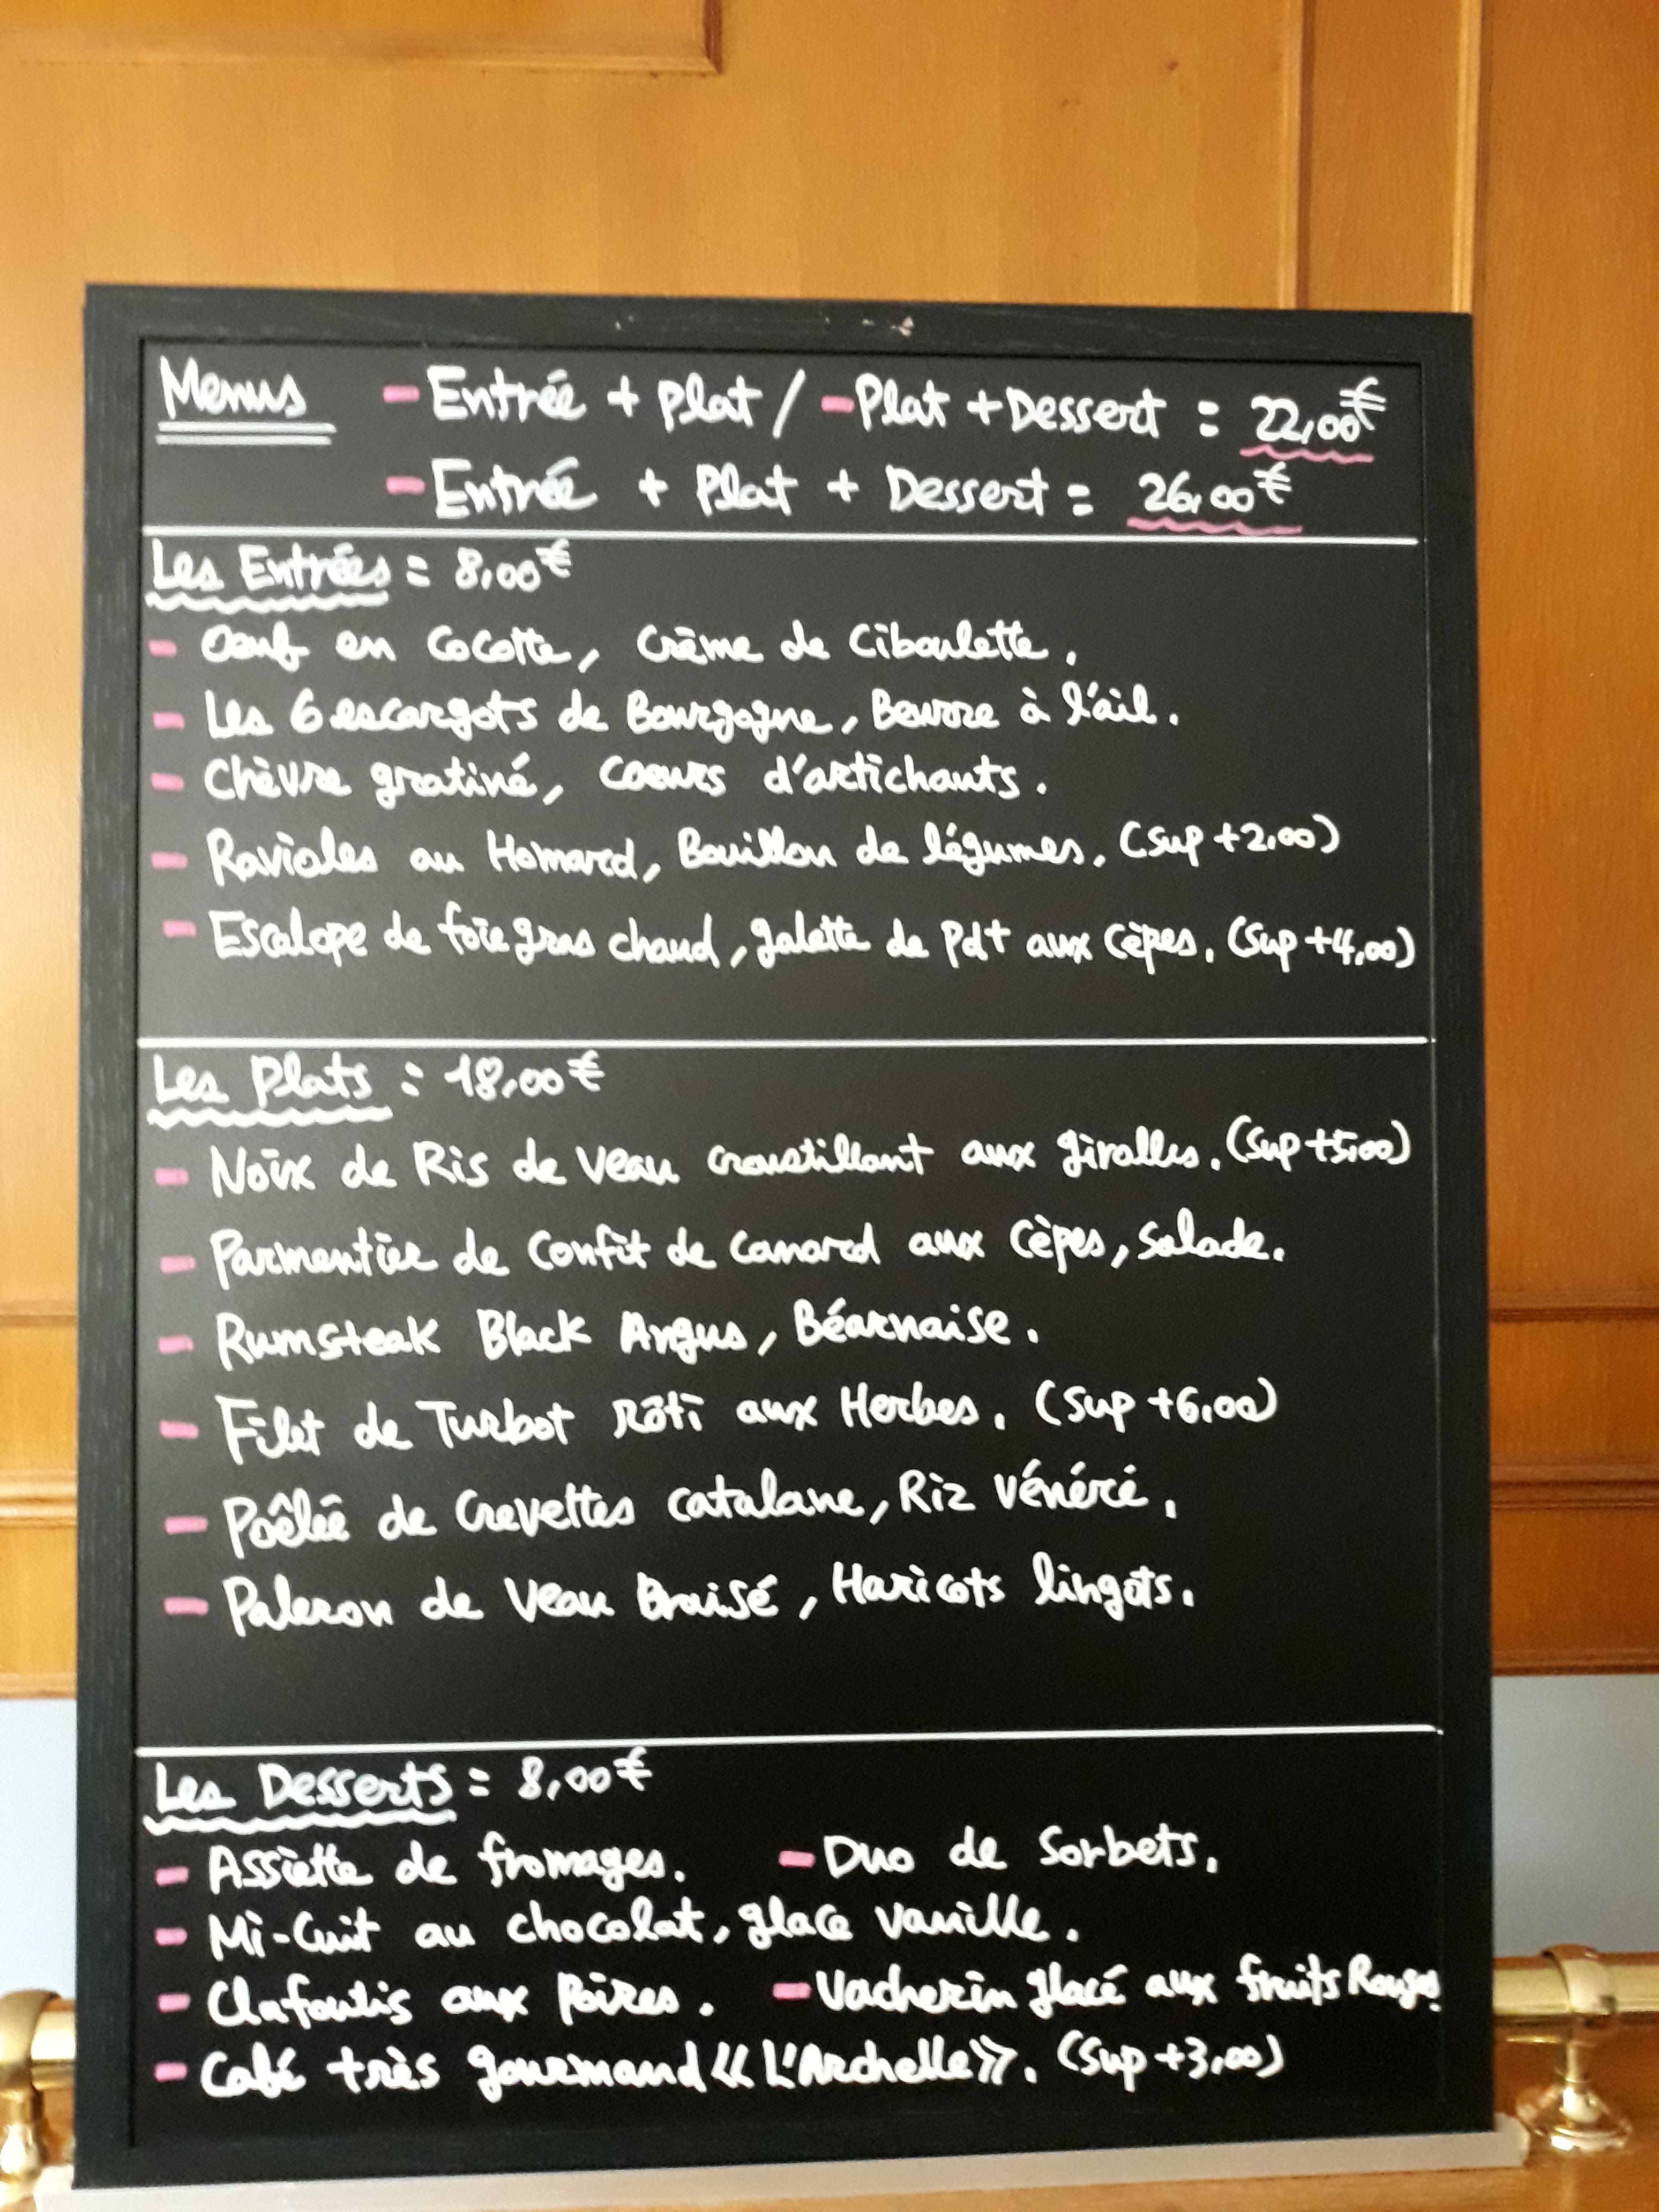 Menus - Entrée + Plat / - Plat + Dessert = 22,00€
- Entrée + Plat + Dessert = 26,00€
Les Entrées = 8,00€
- Oeuf en Cocotte, Crème de Ciboulette.
- Les 6 escargots de Bourgogne, Beurre à l'ail.
- Chèvre gratiné, Coeurs d'artichauts.
- Ravioles au Homard, Bouillon de légumes. (Sup +2,00)
- Escalope de foie gras chaud, galette de Pdt aux Cèpes. (Sup +4,00)
Les Plats = 18,00€
- Noix de Ris de Veau croustillant aux girolles. (Sup +5,00)
- Parmentier de Confit de Canard aux Cèpes, Salade.
- Rumsteak Black Angus, Béarnaise.
- Filet de Turbot rôti aux Herbes. (Sup +6,00)
- Poêlée de Crevettes catalane, Riz Vénéré.
- Paleron de Veau Braisé, Haricots lingots.
Les Desserts = 8,00€
- Assiette de fromages. - Duo de Sorbets.
- Mi-Cuit au chocolat, glace vanille.
- Clafoutis aux Poires. - Vacherin glacé aux fruits Rouges.
- Café très gourmand « L'Archelle ». (Sup +3,00)